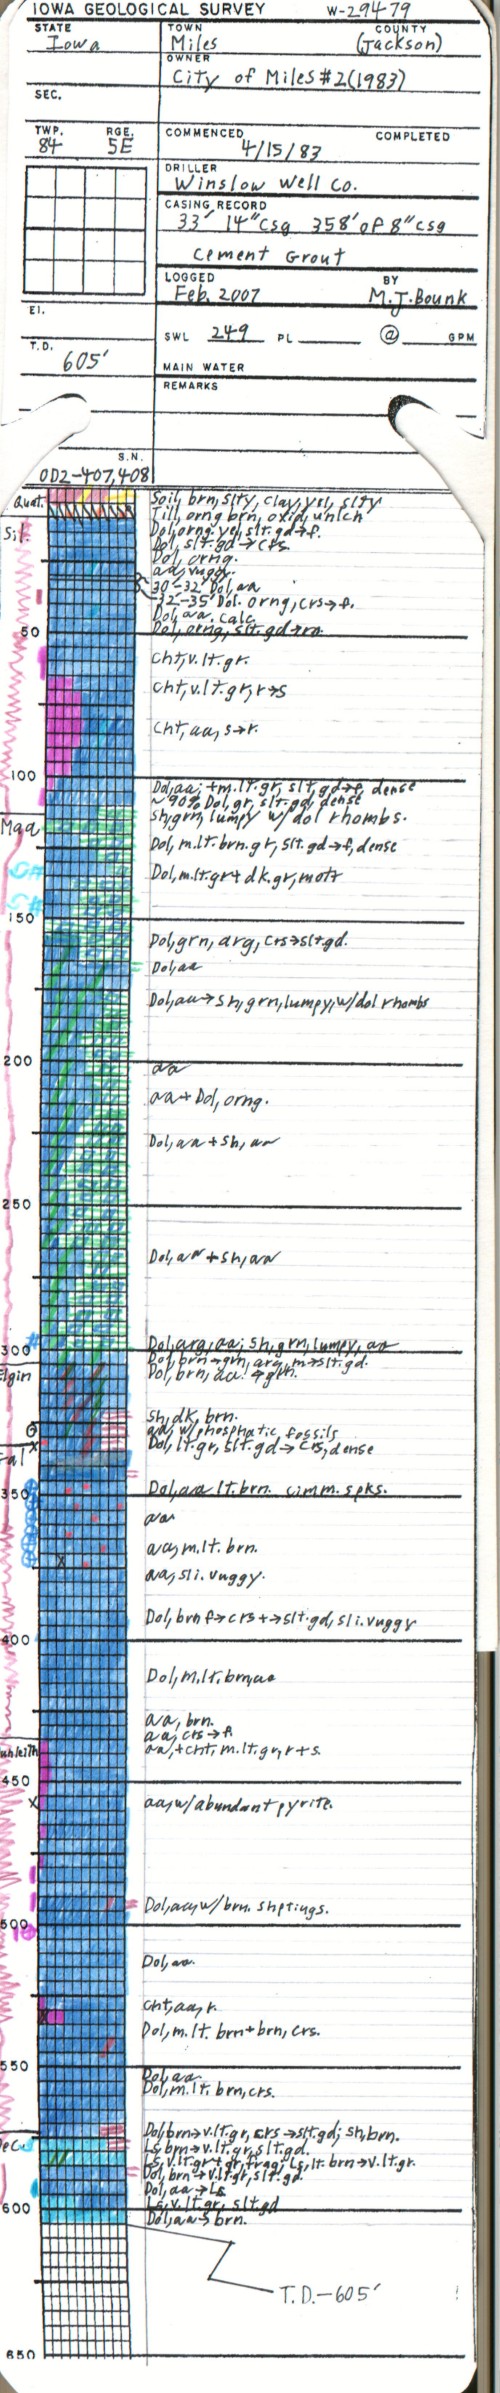 IOWA GEOLOGICAL SURVEY W-29479
STATE TOWN COUNTY
Iowa Miles (Jackson)
OWNER
City of Miles #2 (1983)
SEC.
TWP. RGE. COMMENCED COMPLETED
84 5E 4/15/83
DRILLER
Winslow Well Co.
CASING RECORD
33' 14" csg 358' of 8" csg
Cement Grout
LOGGED BY
Feb. 2007 M.J. Bounk
El.
SWL 249 PL @ GPM
T.D.
605'
MAIN WATER
REMARKS
S.N.
OD2-407,408
Quat. Soil, brn, slty, clay, yel, slty
Till, orng brn, oxid, unlch
Sil. Dol, orng. ye, slt. gd→f.
Dol, slt. gd→crs
Dol, orng.
aa, vuggy.
30'-32' Dol, aa
32'-35' Dol. orng, crs→f.
Dol, aa, calc
50 Dol, orng, slt. gd→m
cht, v. lt. gr.
cht, v. lt. gr, r→s
cht, aa, s→r.
100
Dol, aa; + m. lt. gr, slt, gd→f, dense
~90% Dol, gr, slt. gd, dense
Maq Sh, grn, lumpy w/ dol rhombs.
Dol, m. lt. brn. gr, slt. gd→f, dense
Dol, m. lt. gr + dk. gr, mott
150
Dol, grn, arg, crs→slt. gd.
Dol, aa
Dol, aa→sh, grn, lumpy, w/ dol rhombs
200 aa
aa + Dol, orng.
Dol, aa + sh, aa
250
Dol, aa + sh, aa
300 Dol, arg, aa; sh, grn, lumpy, aa
Dol, brn→grn, arg, m→slt. gd.
Elgin Dol, brn, aa.
Sh, dk, brn.
aa, w/ phosphatic fossils
Gal Dol, lt. gr, slt. gd→crs, dense
350 Dol, aa lt. brn. cinn. spks.
aa
aa, m. lt. brn.
aa, sli. vuggy.
Dol, brn f→crs + →slt. gd, sli. vuggy
400
Dol, m. lt. brn, aa
aa, brn.
aa, crs→f.
aa, + cht, m. lt. gr, r + s.
450
aa, w/ abundant pyrite.
Dol, aa, w/ brn. sh ptings.
500
Dol, aa.
cht, aa, r.
Dol, m. lt. brn + brn, crs.
550 Dol, aa
Dol, m. lt. brn, crs.
Dol, brn→v. lt. gr, crs→slt. gd; sh, brn.
Dec. Ls, brn→v. lt. gr, slt. gd.
Ls, v. lt. gr + gr, frag; Ls, lt. brn→v. lt. gr.
Dol, brn→v. lt. gr, slt. gd
Dol, aa→Ls
600 Ls, v. lt. gr, slt. gd
Dol, aa→brn.
T.D.-605'
650